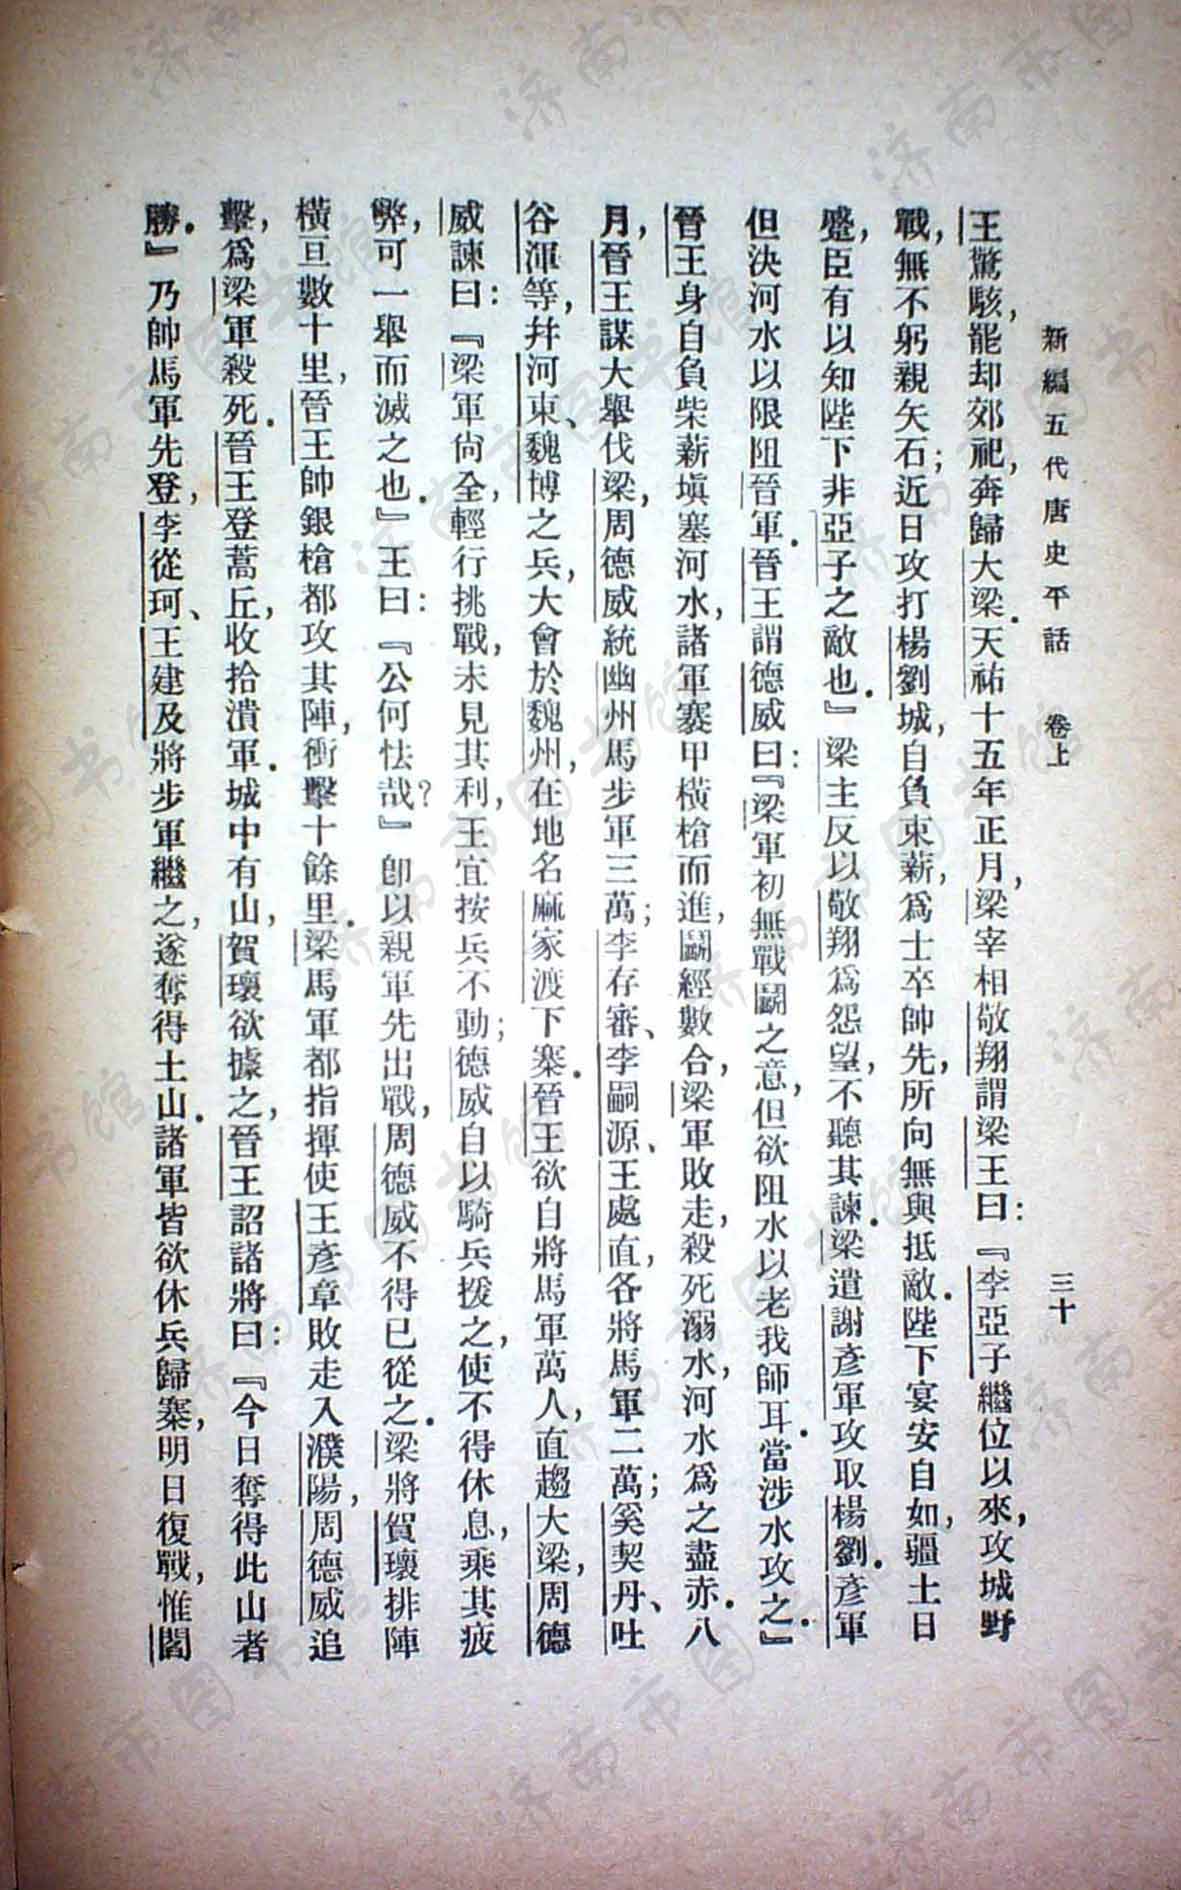 新編五代唐史平話　卷上　三十
王驚駭，罷却郊祀，奔歸大梁．天祐十五年正月，梁宰相敬翔謂梁王曰：『李亞子繼位以來，攻城野
戰，無不躬親矢石；近日攻打楊劉城，自負束薪，爲士卒帥先，所向無與抵敵．陛下宴安自如，疆土日
蹙，臣有以知陛下非亞子之敵也．』梁主反以敬翔爲怨望，不聽其諫．梁遣謝彥軍攻取楊劉．彥軍
但決河水以限阻晉軍．晉王謂德威曰：『梁軍初無戰鬭之意，但欲阻水以老我師耳．當涉水攻之．』
晉王身自負柴薪塡塞河水，諸軍褰甲橫槍而進，鬭經數合，梁軍敗走，殺死溺水，河水爲之盡赤．八
月，晉王謀大舉伐梁，周德威統幽州馬步軍三萬；李存審、李嗣源、王處直，各將馬軍二萬；奚契丹、吐
谷渾等，幷河東、魏博之兵，大會於魏州，在地名麻家渡下寨．晉王欲自將馬軍萬人，直趨大梁，周德
威諫曰：『梁軍尙全，輕行挑戰，未見其利，王宜按兵不動；德威自以騎兵援之，使不得休息，乘其疲
弊，可一舉而滅之也．』王曰：『公何怯哉？』卽以親軍先出戰，周德威不得已從之．梁將賀瓌排陣
橫亘數十里，晉王帥銀槍都攻其陣，衝擊十餘里．梁馬軍都指揮使王彥章敗走入濮陽，周德威追
擊，爲梁軍殺死．晉王登蒿丘，收拾潰軍．城中有山，賀瓌欲據之，晉王詔諸將曰：『今日奪得此山者
勝．』乃帥馬軍先登，李從珂、王建及將步軍繼之，遂奪得土山．諸軍皆欲休兵歸寨，明日復戰，惟閻
济南市图书馆